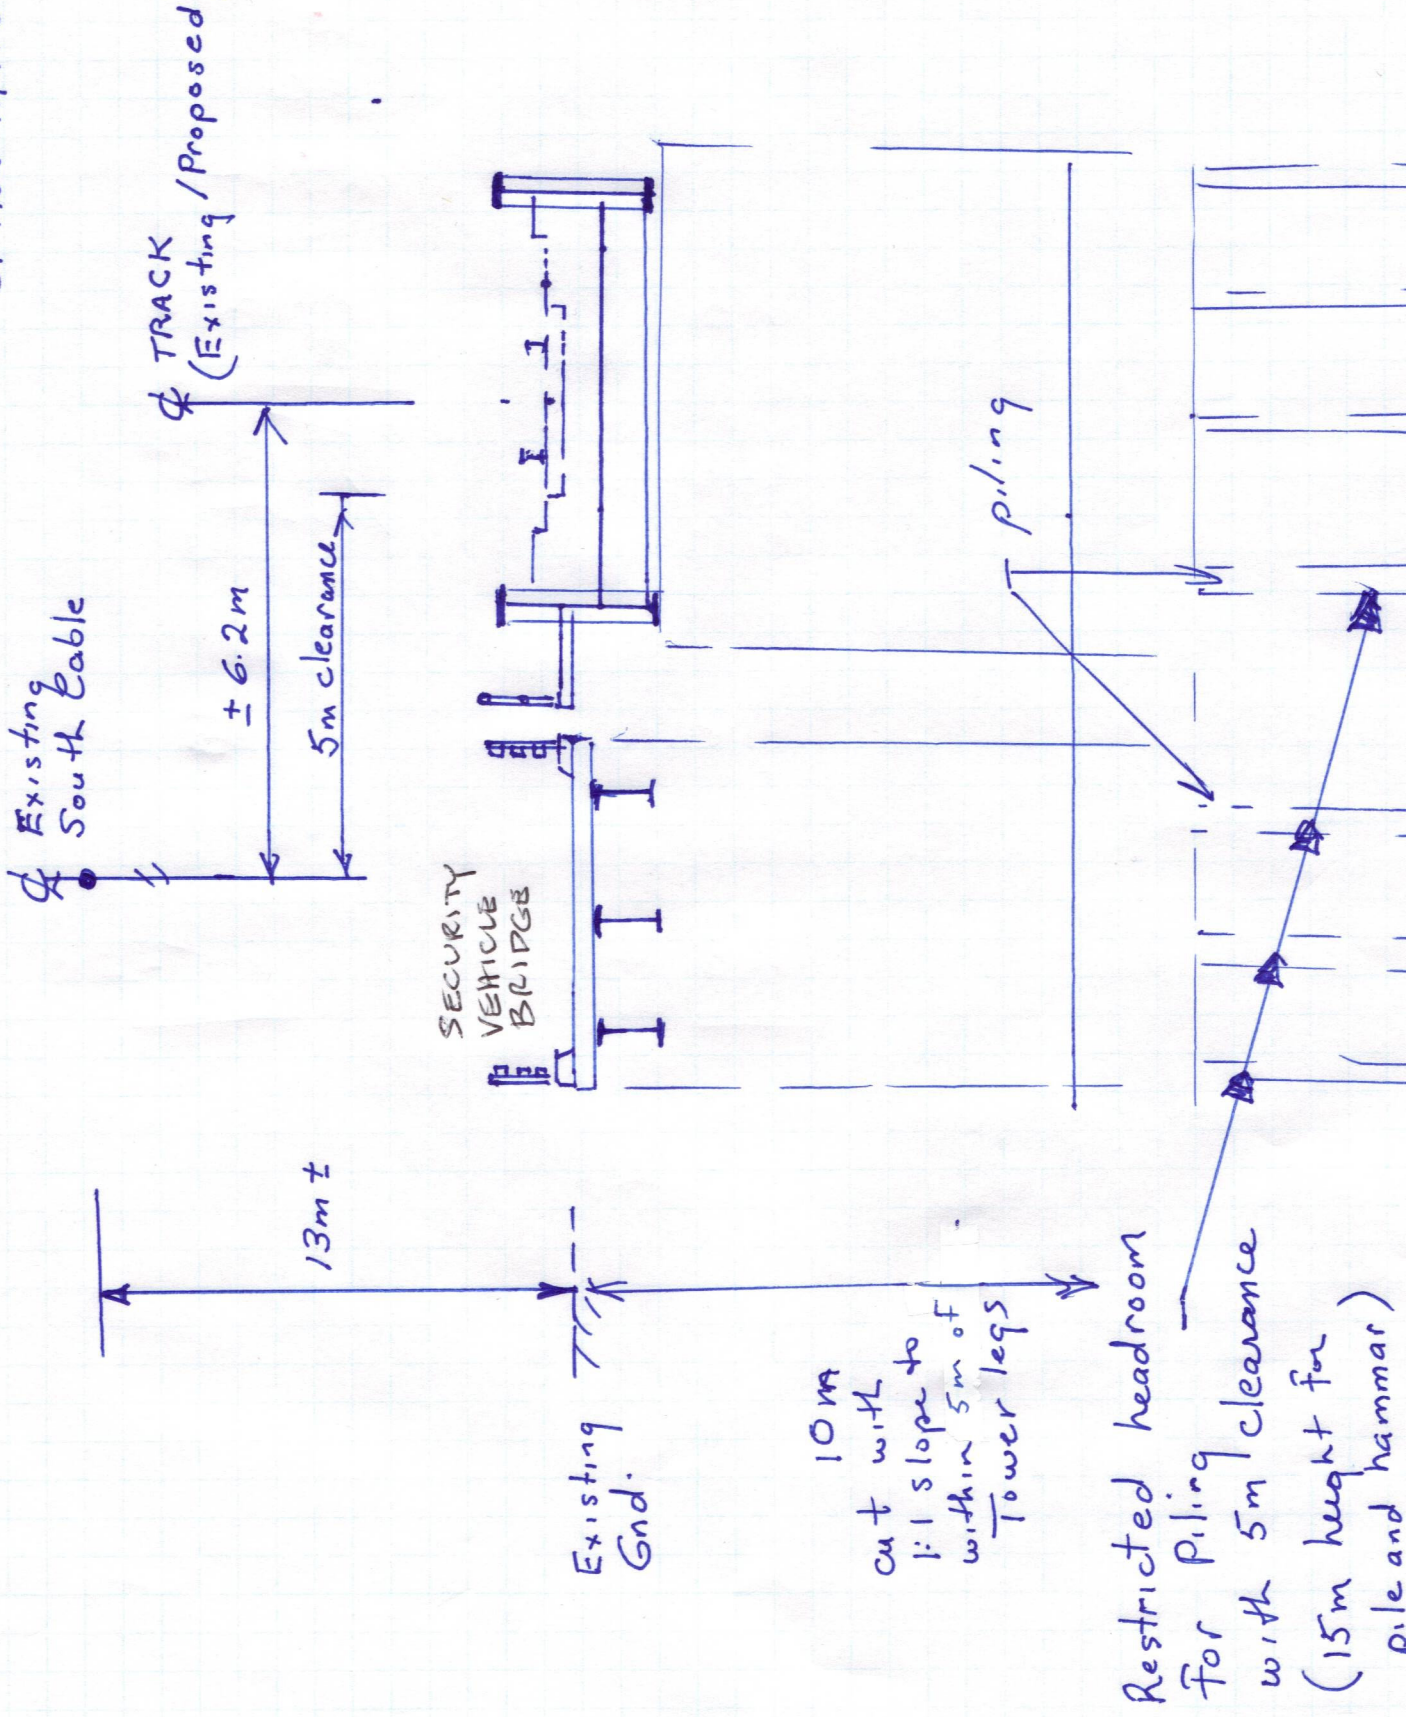 ℄ Existing
South Cable
℄ TRACK
(Existing/Proposed
± 6.2m
5m clearance
SECURITY
VEHICLE
BRIDGE
13m ±
Existing
Gnd.
10m
cut with
1:1 slope to
within 5m of
Tower legs
piling
Restricted headroom
for piling
with 5m clearance
(15m height for
pile and hammar)